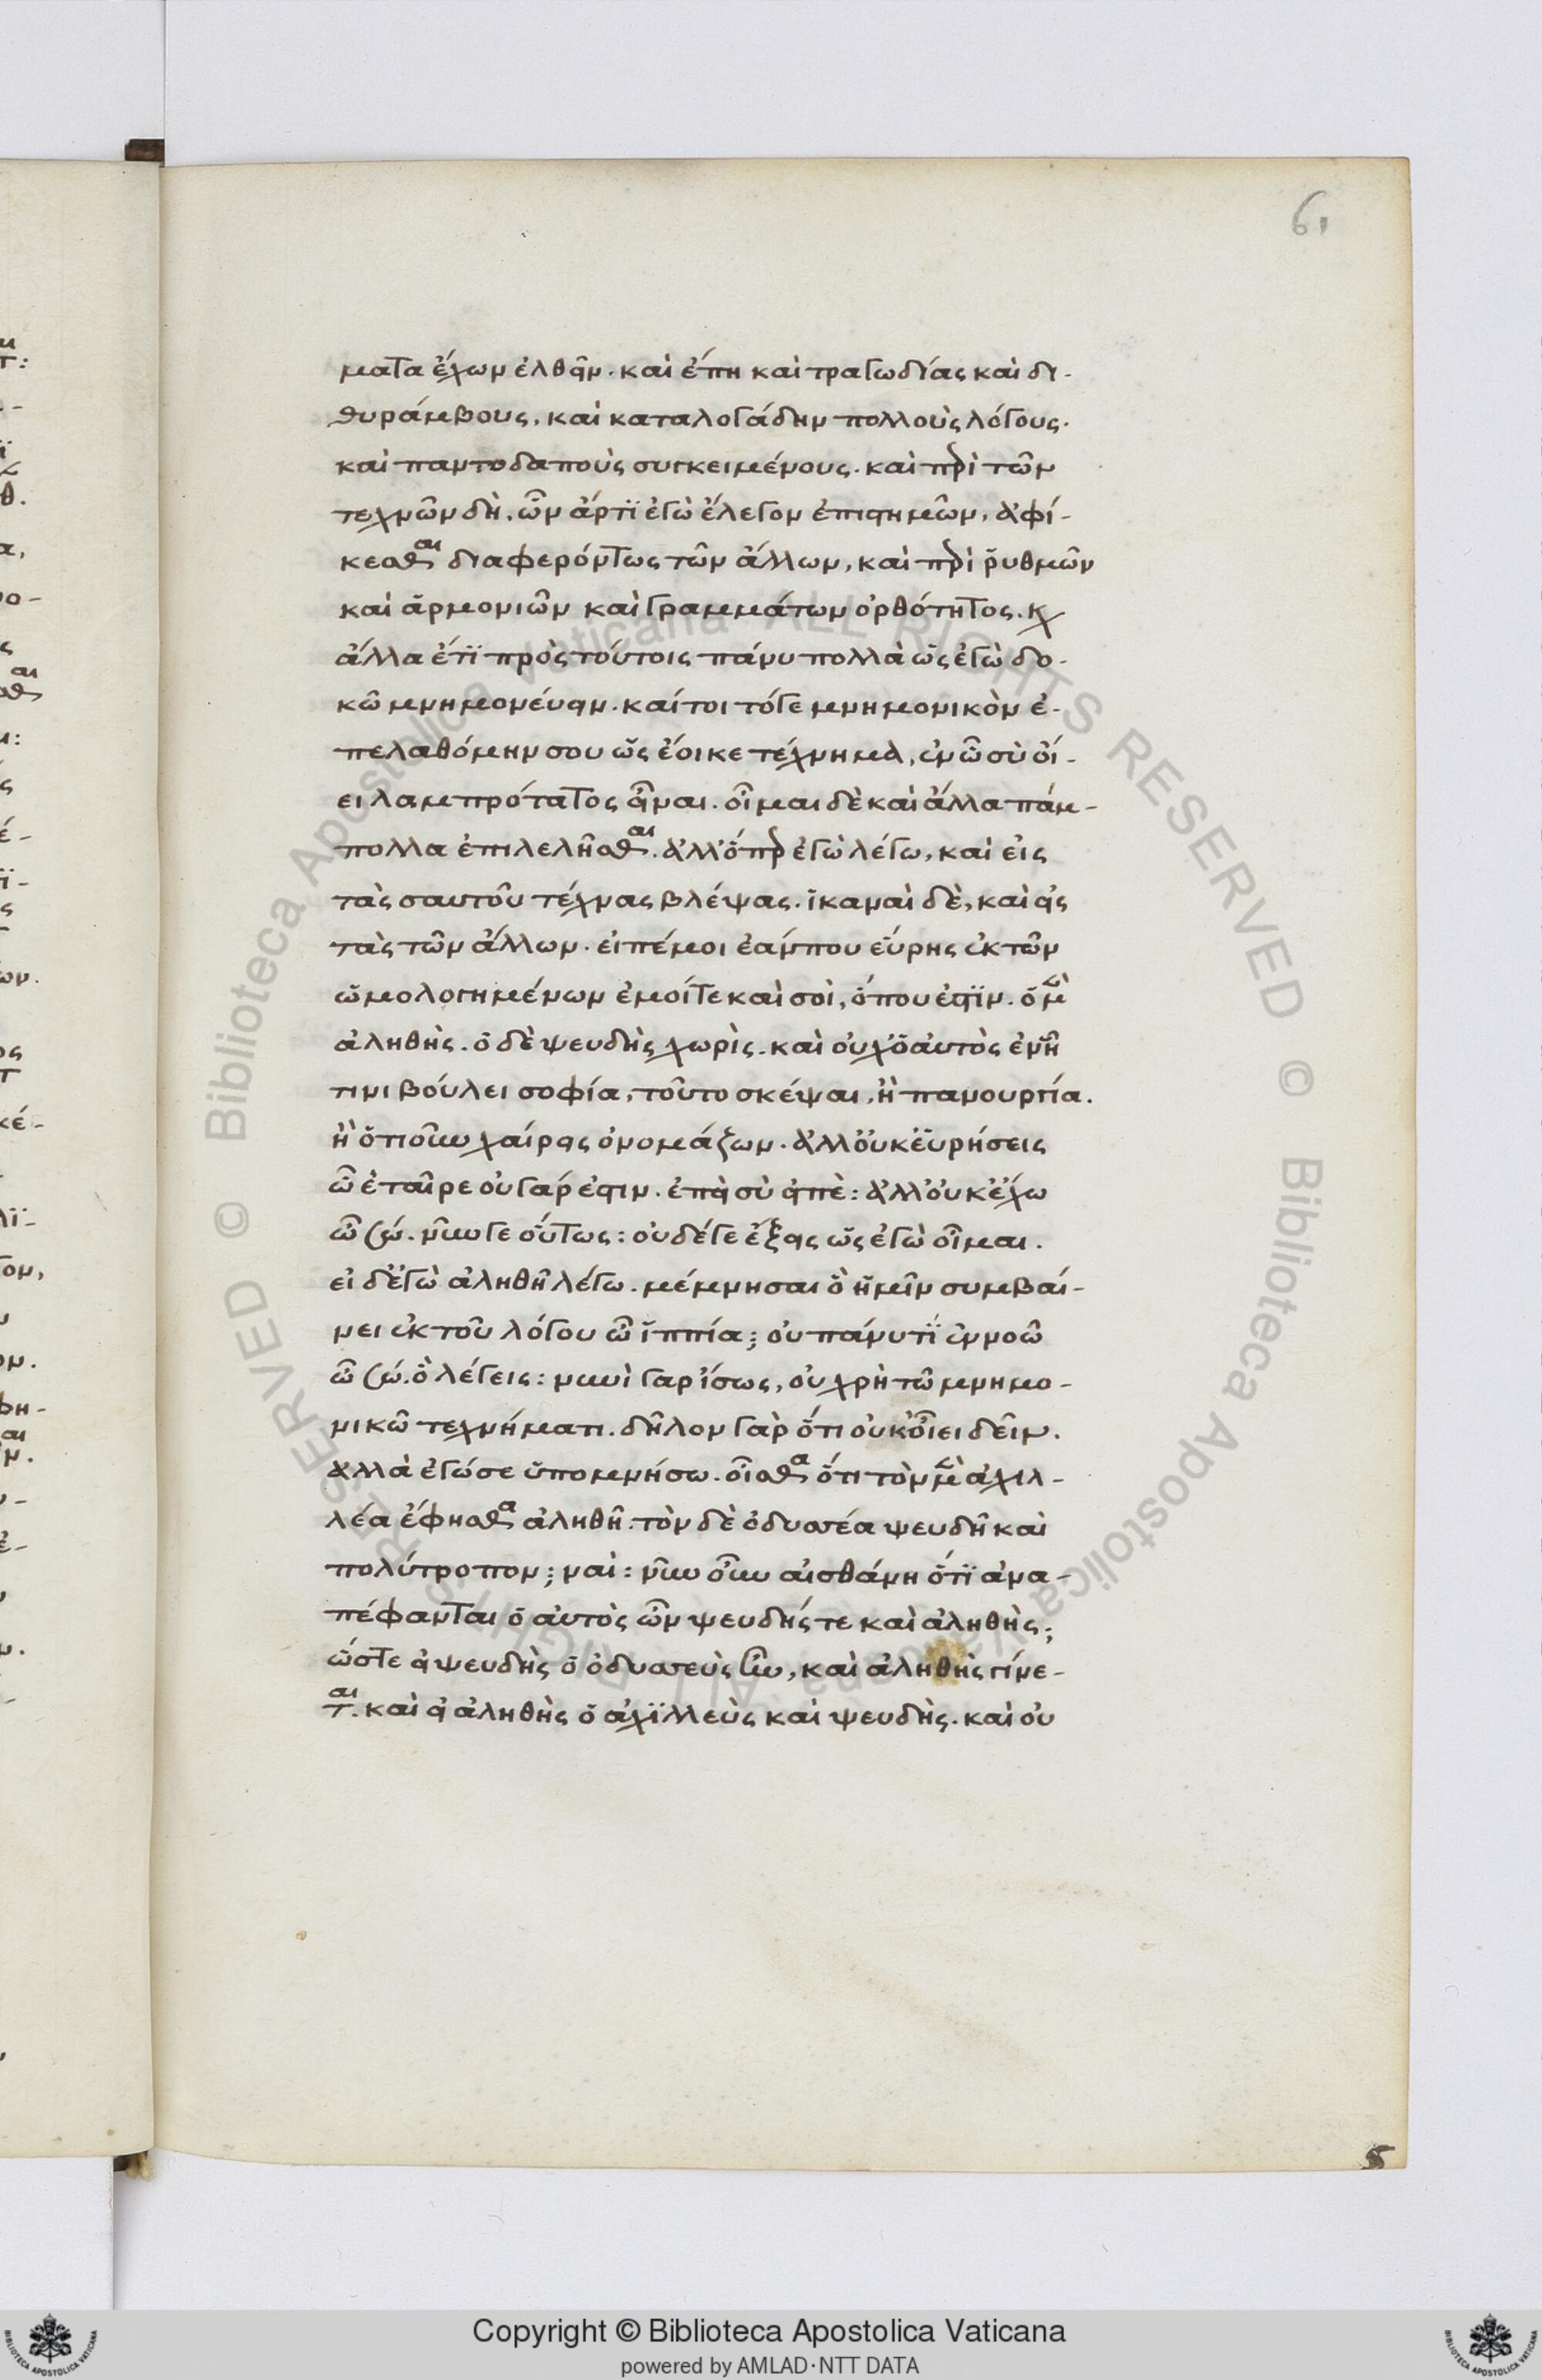 61
ματα ἔχων ἐλθεῖν. καὶ ἔπη καὶ τραγωδίας καὶ δι-
θυράμβους, καὶ καταλογάδην πολλοὺς λόγους.
καὶ παντοδαποὺς συγκειμένους. καὶ περὶ τῶν
τεχνῶν δὴ. ὧν ἄρτϊ ἐγὼ ἔλεγον ἐπιστημῶν, ἀφί-
κεσθαι διαφερόντως τῶν ἄλλων, καὶ περὶ ῥυθμῶν
καὶ ἁρμονιῶν καὶ γραμμάτων ὀρθότητος. κ
ἄλλα ἔτϊ πρὸς τούτοις πάνυ πολλὰ ὡς ἐγὼ δο-
κῶ μνημονεύειν. καίτοι τόγε μνημονικὸν ἐ-
πελαθόμην σου ὡς ἔοικε τέχνημα, ἐν ὧ σὺ οἴ-
ει λαμπρότατος εἶναι. οἶμαι δὲ καὶ ἄλλα πάμ-
πολλα ἐπιλελῆσθαι. ἀλλ' ὅπερ ἐγὼ λέγω, καὶ εἰς
τὰς σαυτοῦ τέχνας βλέψας. ἱκαναὶ δὲ, καὶ εἰς
τὰς τῶν ἄλλων. εἰπέ μοι ἐάν που εὕρης ἐκ τῶν
ὡμολογημένων ἐμοί τε καὶ σοὶ, ὅπου ἐστϊν. ὁ μὲν
ἀληθὴς. ὁ δὲ ψευδὴς χωρὶς. καὶ οὐχ ὁ αὐτὸς ἐν ἧ
τινι βούλει σοφία, τοῦτο σκέψαι, ἢ πανουργία.
ἢ ὁτιοῦν χαίρεις ὀνομάζων. ἀλλ' οὐκ εὑρήσεις
ὦ ἑταῖρε οὐ γάρ ἐστιν. ἐπεὶ σὺ εἰπὲ: ἀλλ' οὐκ ἔχω
ὦ σώ. νῦν γε οὕτως: οὐδέ γε ἕξεις ὡς ἐγὼ οἶμαι.
εἰ δ' ἐγὼ ἀληθῆ λέγω. μέμνησαι ὃ ἡμῖν συμβαί-
νει ἐκ τοῦ λόγου ὦ ἱππία; οὐ πάνυ τϊ ἐννοῶ
ὦ σώ. ὃ λέγεις: νυνὶ γαρ ἴσως, οὐ χρὴ τῶ μνημο-
νικῶ τεχνήματι. δῆλον γὰρ ὅτι οὐκ οἴει δεῖν.
ἀλλὰ ἐγώ σε ὑπομνήσω. οἶσθα ὅτι τὸν μὲν ἀχιλ-
λέα ἔφησθα ἀληθῆ. τὸν δὲ ὀδυσσέα ψευδῆ καὶ
πολύτροπον; ναὶ: νῦν οὖν αἰσθάνη ὅτϊ ἀνα-
πέφανται ὁ αὐτὸς ὢν ψευδής τε καὶ ἀληθὴς;
ὥστε εἰ ψευδὴς ὁ ὀδυσσεὺς ἦν, καὶ ἀληθὴς γίνε-
ται. καὶ εἰ ἀληθὴς ὁ ἀχϊλλεὺς καὶ ψευδὴς. καὶ οὐ
Copyright © Biblioteca Apostolica Vaticana
powered by AMLAD·NTT DATA